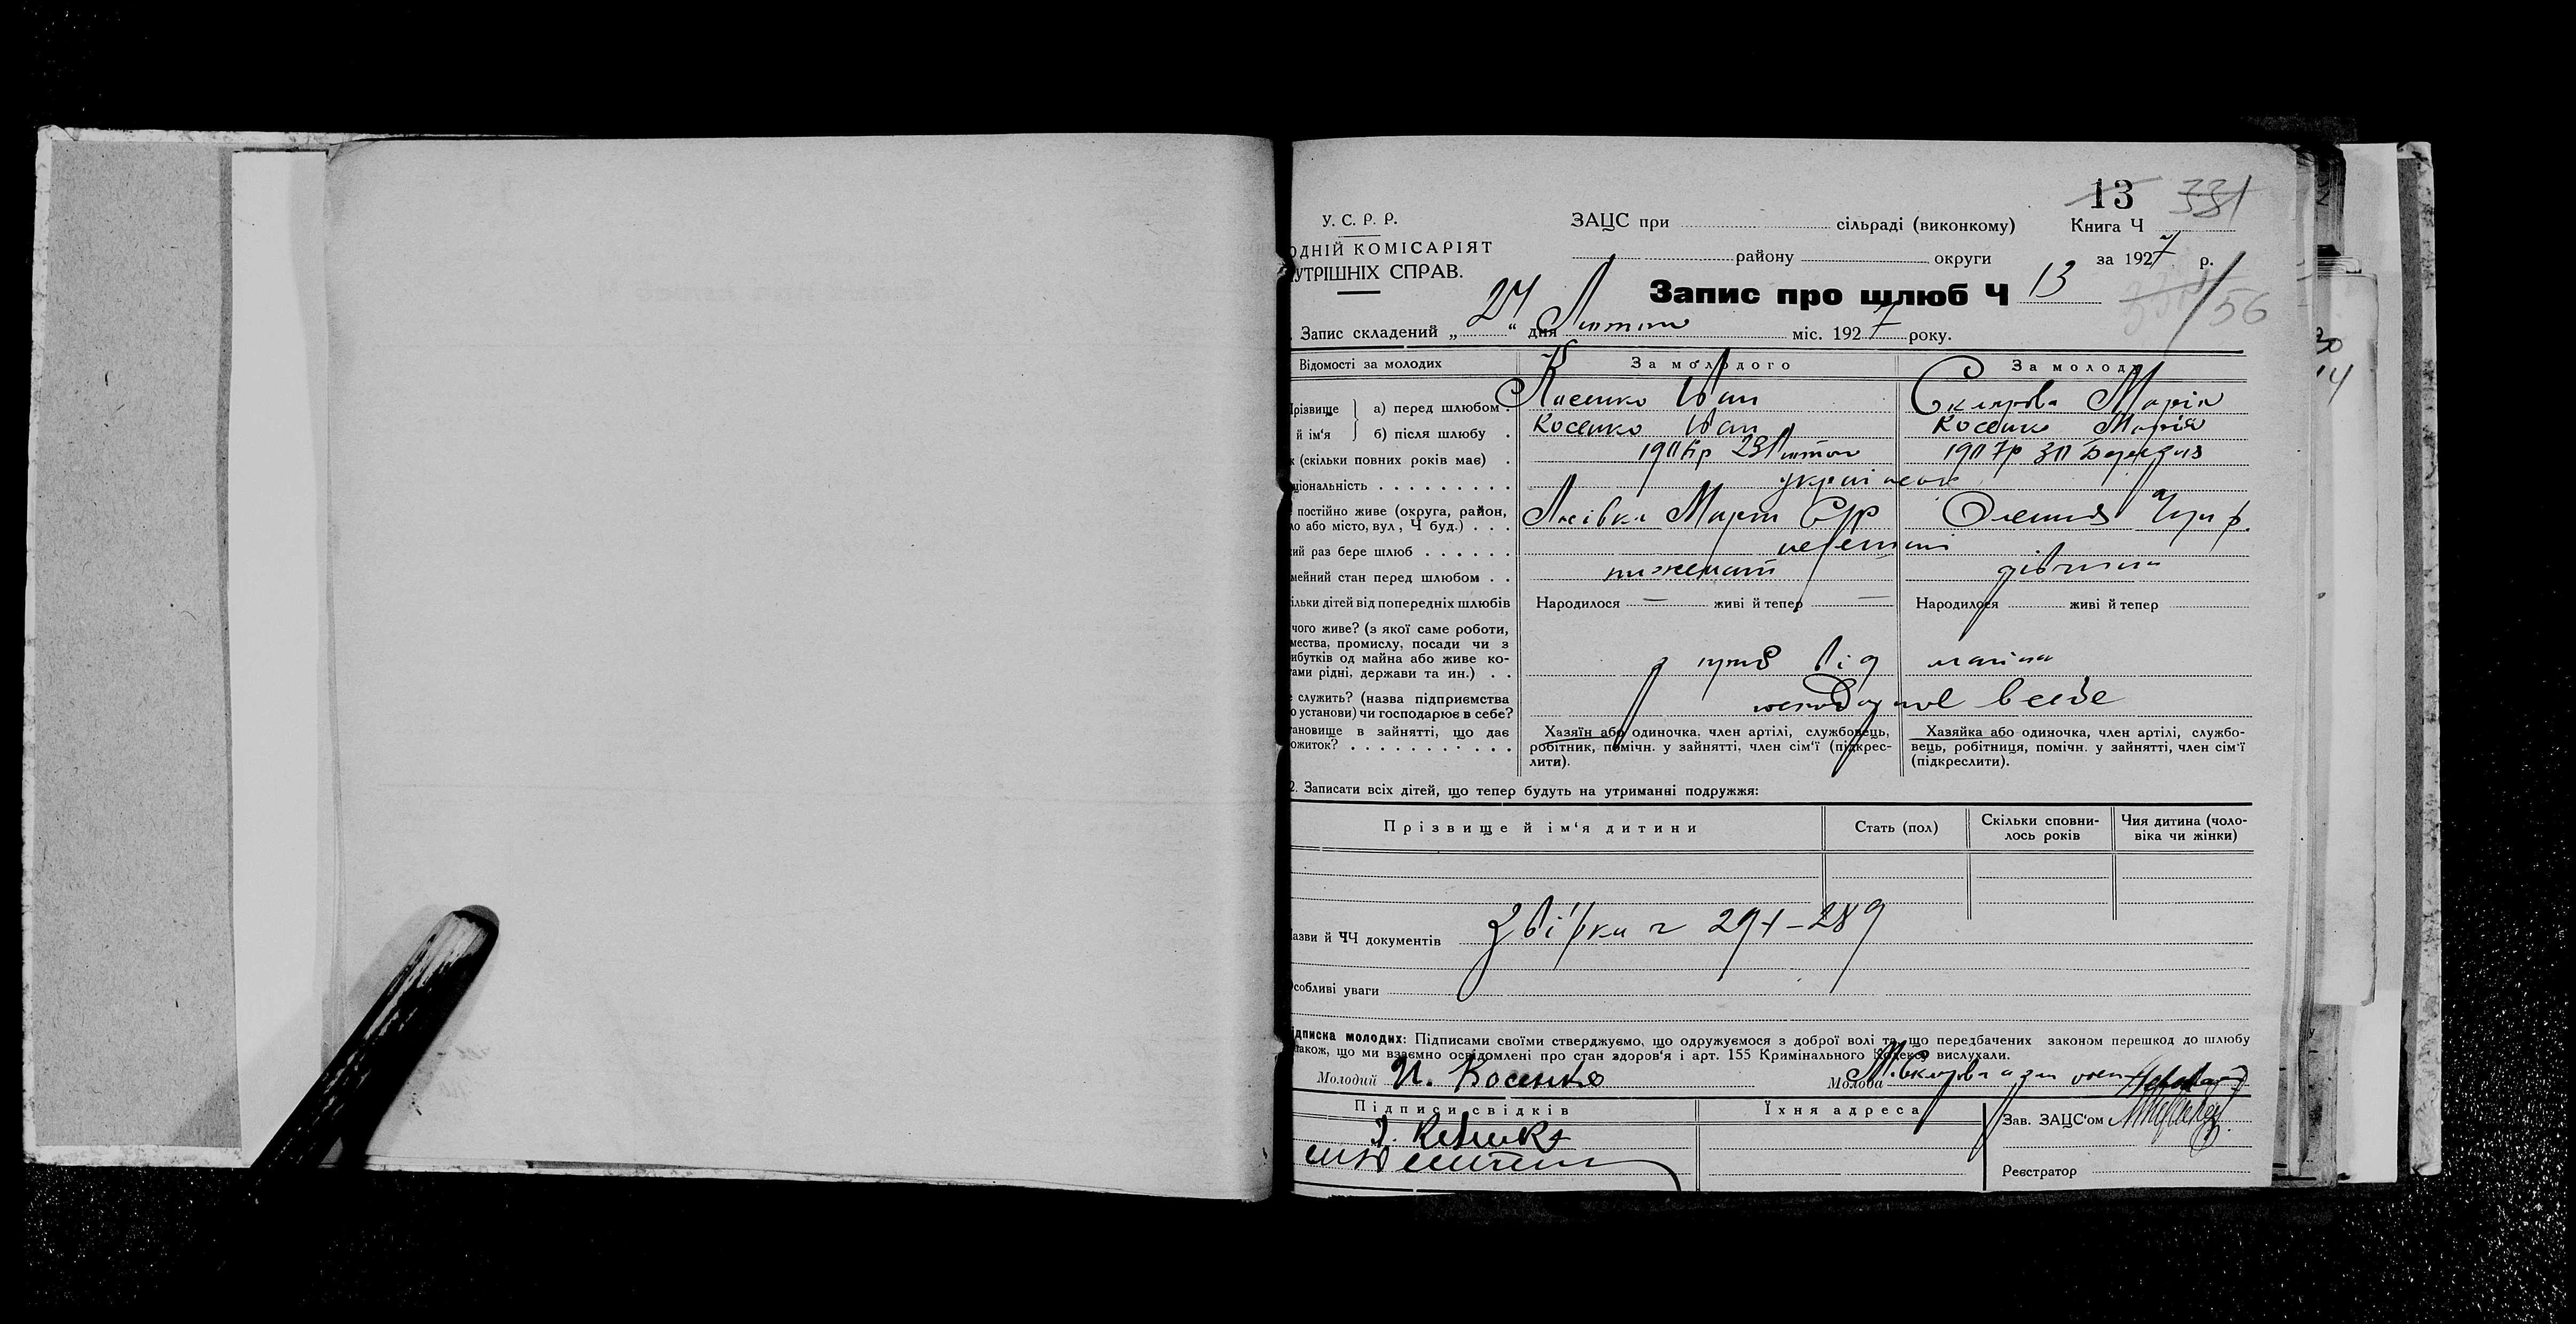 13 331
У. С. Р. Р.
ОДНІЙ КОМІСАРІЯТ
УТРІШНІХ СПРАВ.
ЗАЦС при сільраді (виконкому) Книга Ч
району округи за 1927 р.
Запис про шлюб Ч 13
56
Запис складений „ 24 “ дня Лютого міс. 1927 року.
Відомості за молодих За молодого За молоду
Прізвище а) перед шлюбом Косенко Іван Склярова Марія
й ім'я б) після шлюбу Косенко Іван Косенко Марія
к (скільки повних років має) 1906р 23 Лютого 1907р 30 Березня
ціональність українські
постійно живе (округа, район,
ло або місто, вул, Ч буд.)
ий раз бере шлюб
мейний стан перед шлюбом нежонатий дівчина
ільки дітей від попередніх шлюбів Народилося — живі й тепер — Народилося живі й тепер
чого живе? (з якої саме роботи,
мества, промислу, посади чи з
ибутків од майна або живе ко-
тами рідні, держави та ин.) від майна
служить? (назва підприємства
о установи) чи господарює в себе? в себе
тановище в зайнятті, що дає
ожиток?
Хазяїн або одиночка, член артілі, службовець,
робітник, помічн. у зайнятті, член сім'ї (підкрес-
лити).
Хазяйка або одиночка, член артілі, службо-
вець, робітниця, помічн. у зайнятті, член сім'ї
(підкреслити).
2. Записати всіх дітей, що тепер будуть на утриманні подружжя:
Прізвище й ім'я дитини Стать (пол) Скільки сповни-
лось років Чия дитина (чоло-
віка чи жінки)
азви й ЧЧ документів 289
Особливі уваги
ідписка молодих: Підписами своїми стверджуємо, що одружуємося з доброї волі та що передбачених законом перешкод до шлюбу
також, що ми взаємно освідомлені про стан здоров'я і арт. 155 Кримінального Кодексу вислухали.
Молодий И. Косенко Молода
Підписи свідків Їхня адреса Зав. ЗАЦС'ом
Реєстратор
30
14